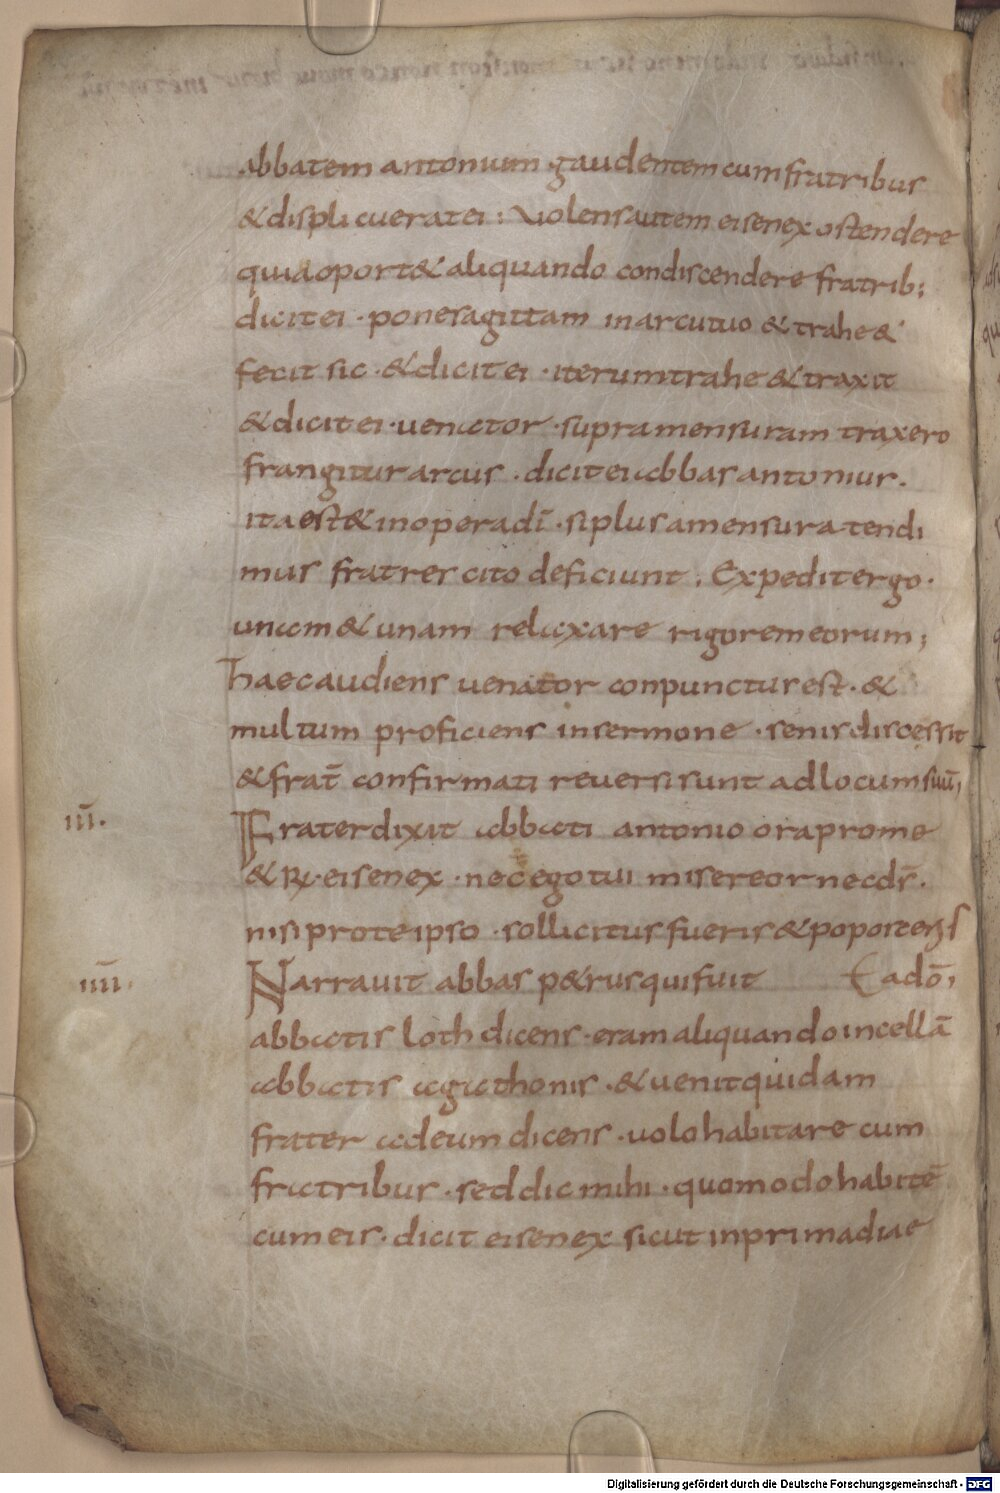 abbatem antonium gaudentem cum fratribus
& displicuerat ei : Uolens autem ei senex ostendere
quia oport& aliquando condiscendere fratrib;
dicit ei · pone sagittam in arcu tuo & trahe &
fecit sic · & dicit ei · iterum trahe & traxit
& dicit ei · uenator · supra mensuram traxero
frangitur arcus · dicit ei abbas antonius .
ita est & in opera dī · si plus a mensura tendi
mus fratres cito deficiunt . Expedit ergo ·
unam & unam relaxare rigorem eorum ;
haec audiens uenator conpunctus est · &
multum proficiens in sermone · senis discessit
& frat̄ confirmati reuersi sunt ad locum suū;
III · Frater dixit abbati antonio ora pro me
& R̶ · ei senex · nec ego tui misereor nec ds̄ ·
nisi pro te ipso · sollicitus fueris & poposceris
IIII · Narrauit abbas p&rus qui fuit a dō ;
abbatis loth dicens · eram aliquando in cellā
abbatis agathonis · & uenit quidam
frater ad eum dicens · uolo habitare cum
fratribus · sed dic mihi · quomodo habitē
cum eis · dicit ei senex sicut in prima diae
Digitalisierung gefördert durch die Deutsche Forschungsgemeinschaft - DFG